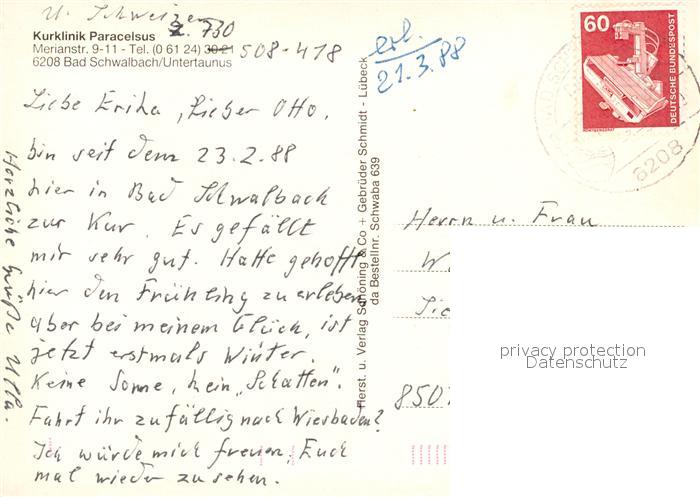 U. Schweizer
Z. 730
Kurklinik Paracelsus
Merianstr. 9-11 - Tel. (0 61 24) 3021 508-418
6208 Bad Schwalbach/Untertaunus
erl.
21.3.88
60
DEUTSCHE BUNDESPOST
6208
Liebe Erika, Lieber Otto,
bin seit dem 23.2.88
hier in Bad Schwalbach
zur Kur. Es gefällt
mir sehr gut. Hatte gehofft
hier den Frühling zu erleben
aber bei meinem Glück, ist
jetzt erstmals Winter.
Keine Sonne, kein „Schatten".
Fahrt ihr zufällig nach Wiesbaden?
Ich würde mich freuen, Euch
mal wieder zu sehen.
Herzliche Grüße Ulla.
Herst. u. Verlag Schöning & Co + Gebrüder Schmidt - Lübeck
da Bestellnr. Schwaba 639
Herrn u. Frau
8501
privacy protection
Datenschutz